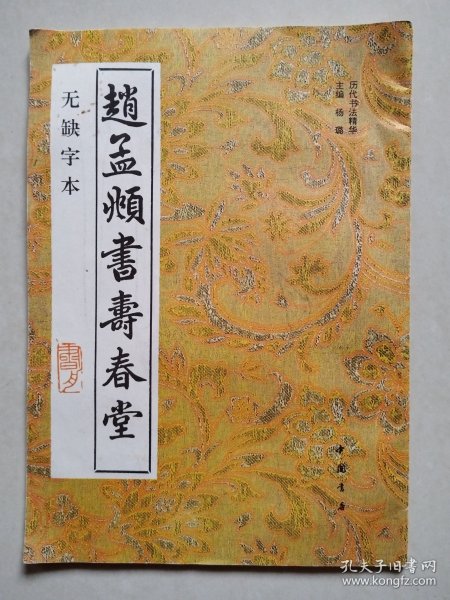 历代书法精华
主编 杨璐
趙孟頫書壽春堂
无缺字本
中国书店
孔夫子旧书网
www.kongfz.com